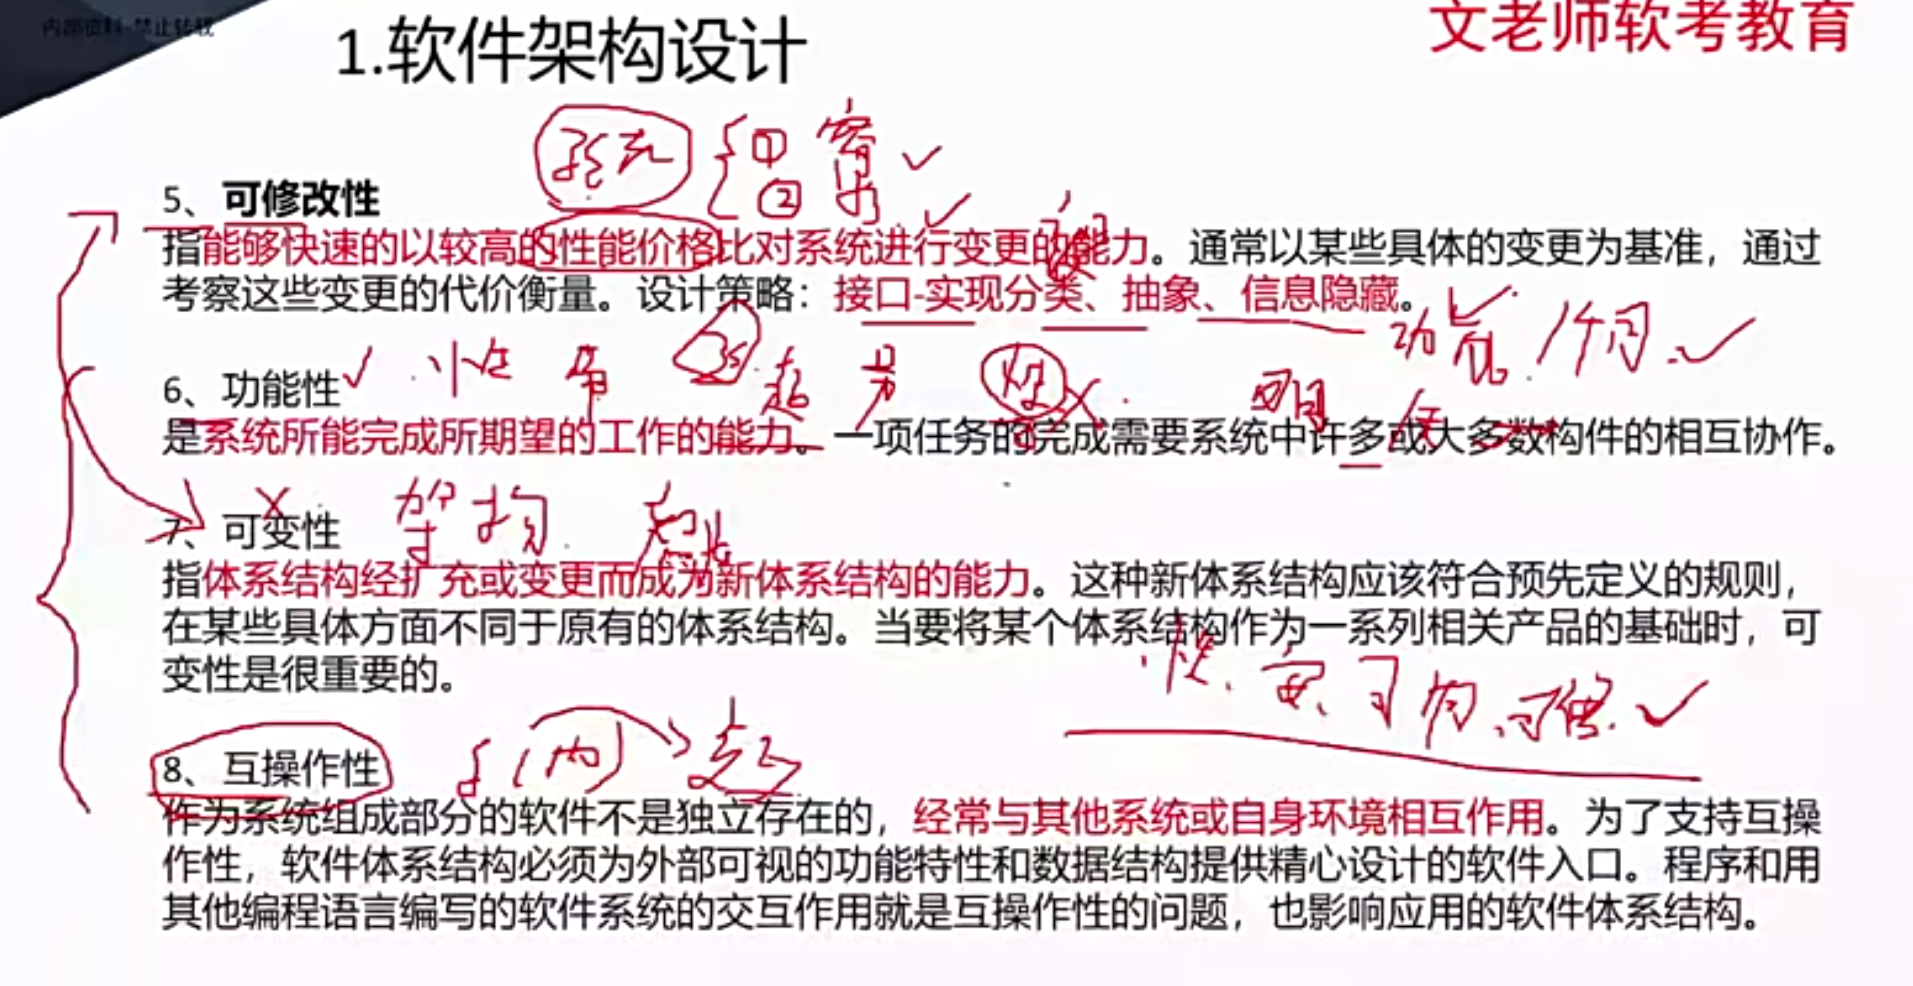 内部资料-禁止转载
文老师软考教育
1.软件架构设计
5、可修改性
指能够快速的以较高的性能价格比对系统进行变更的能力。通常以某些具体的变更为基准，通过
考察这些变更的代价衡量。设计策略：接口-实现分类、抽象、信息隐藏。
功能
6、功能性
是系统所能完成所期望的工作的能力。一项任务的完成需要系统中许多或大多数构件的相互协作。
架构
7、可变性
指体系结构经扩充或变更而成为新体系结构的能力。这种新体系结构应该符合预先定义的规则，
在某些具体方面不同于原有的体系结构。当要将某个体系结构作为一系列相关产品的基础时，可
变性是很重要的。
8、互操作性
作为系统组成部分的软件不是独立存在的，经常与其他系统或自身环境相互作用。为了支持互操
作性，软件体系结构必须为外部可视的功能特性和数据结构提供精心设计的软件入口。程序和用
其他编程语言编写的软件系统的交互作用就是互操作性的问题，也影响应用的软件体系结构。